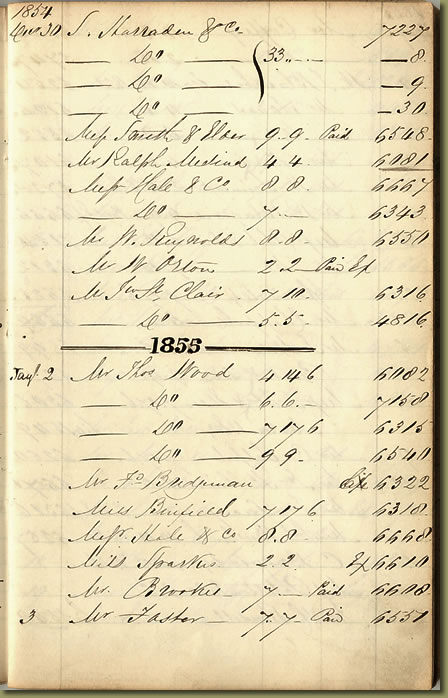 1854
Dec 30 S. Harraden & Co. 7227
— Do — 33 „ — — 8
— Do — — 9
— Do — — 30
Messrs Smith & Elder 9 . 9 . Paid 6548
Mr Ralph 4 4 6081
Messrs Hale & Co 8 8 . 6667
— Do — 7 . — 6343
Mr W. Reynolds 8 . 8 . 6550
Mr W Orton 2 2 — Paid Ex
Mr Jno St. Clair 7 10 . 6316
— Do — 5 . 5 . 4816
1855
Jany. 2 Mr Thos Wood 4 14 6 6082
— Do — 6 . 6 . — 7158
— Do — 7 17 6 6315
— Do — 9 9 - 6540
Mr Fo Bridgeman Ex 6322
Miss Binfield 7 17 6 6318
Messrs Hale & Co 8 . 8 . 6668
Miss Sparkes 2 . 2 . Ex 6610
Mr. Brookes 7 — Paid 6608
3 Mr Foster — 7 . 7 . Paid 6551